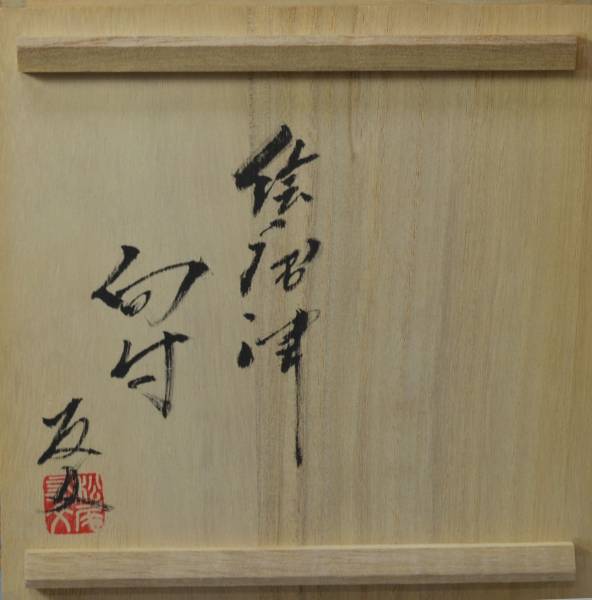 絵唐津
向付
友文